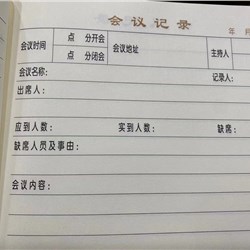 会议记录
年 月
会议时间 点 分开会 会议地址 主持人
点 分闭会
会议名称: 记录人:
出席人:
应到人数: 实到人数: 缺席:
缺席人员及事由:
会议内容: